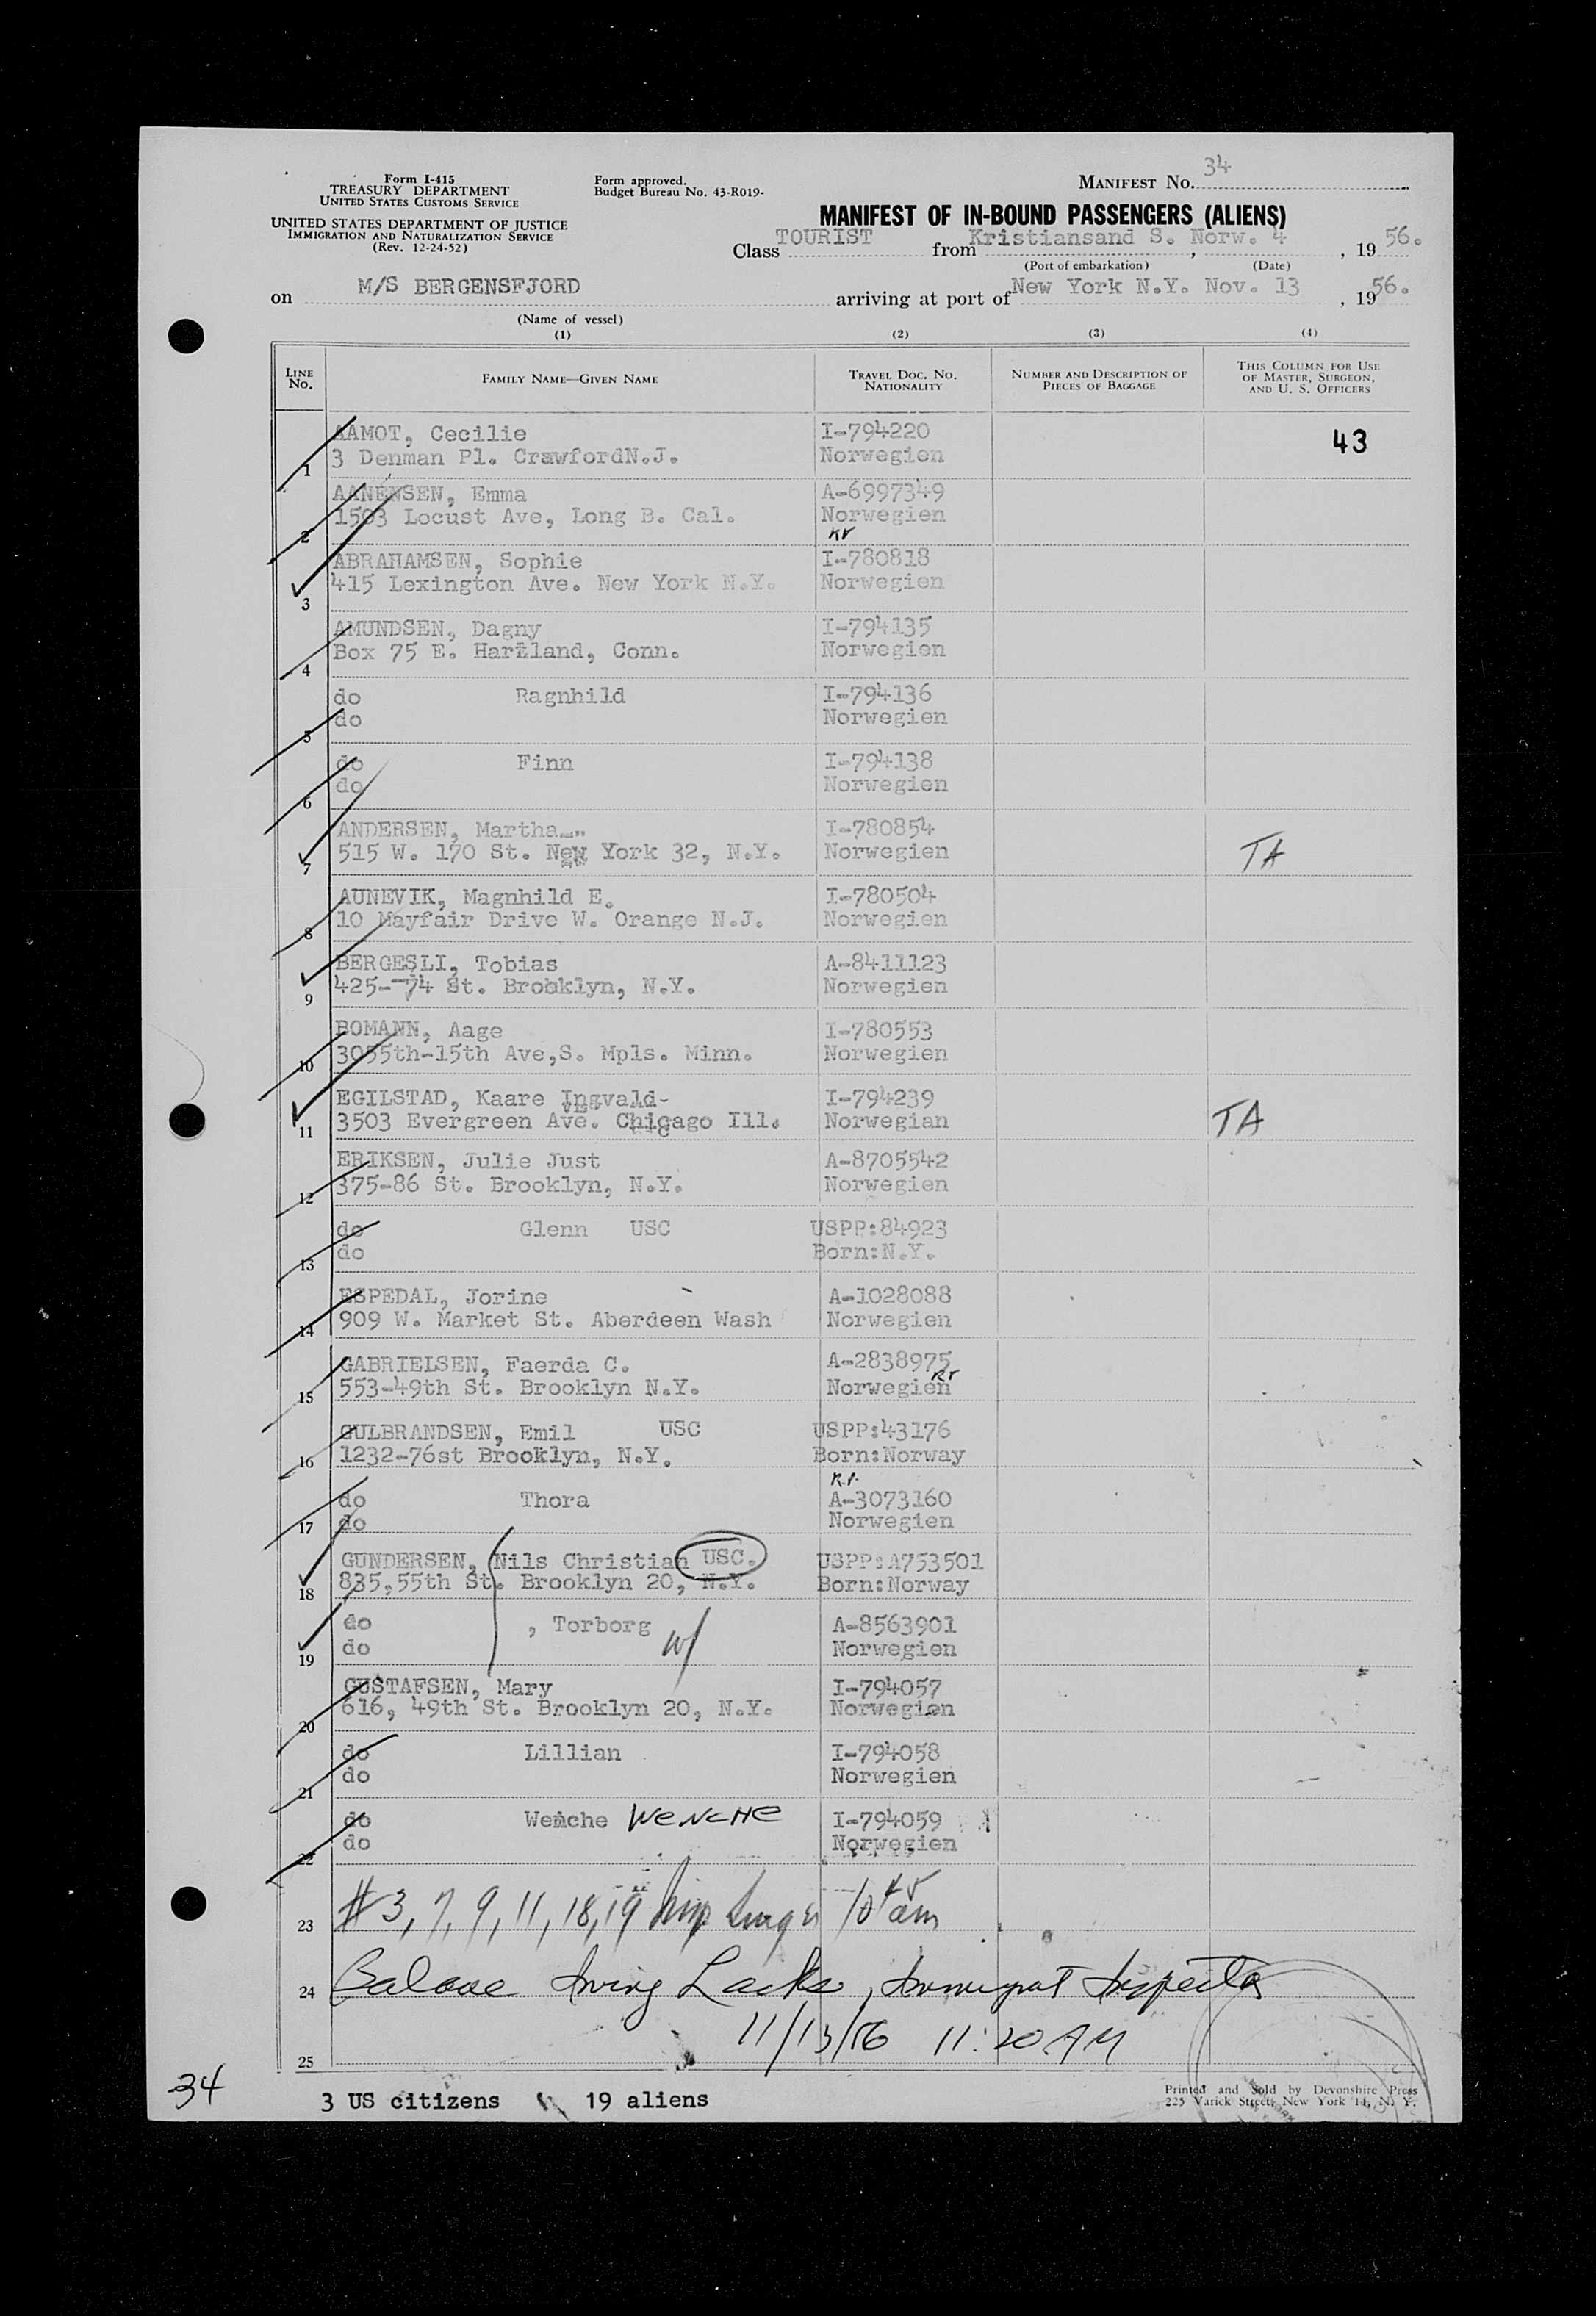 34
Form I-415
TREASURY DEPARTMENT
UNITED STATES CUSTOMS SERVICE
Form approved.
Budget Bureau No. 43-R019-
MANIFEST NO. 34
UNITED STATES DEPARTMENT OF JUSTICE
IMMIGRATION AND NATURALIZATION SERVICE
(Rev. 12-24-52)
MANIFEST OF IN-BOUND PASSENGERS (ALIENS)
Class TOURIST from Kristiansand S. Norw. 4, 19 56.
(Port of embarkation) (Date)
on M/S BERGENSFJORD arriving at port of New York N.Y. Nov. 13, 19 56.
(Name of vessel)
(1) (2) (3) (4)
LINE No. FAMILY NAME—GIVEN NAME TRAVEL DOC. NO. NATIONALITY NUMBER AND DESCRIPTION OF PIECES OF BAGGAGE THIS COLUMN FOR USE OF MASTER, SURGEON, AND U. S. OFFICERS
AAMOT, Cecilie I-794220 43
1 3 Denman Pl. CrawfordN.J. Norwegien
AANENSEN, Emma A-6997349
2 1503 Locust Ave, Long B. Cal. Norwegien
ABRAHAMSEN, Sophie I-780818
3 415 Lexington Ave. New York N.Y. Norwegien
AMUNDSEN, Dagny I-794135
4 Box 75 E. Hartland, Conn. Norwegien
do Ragnhild I-794136
5 do Norwegien
do Finn I-794138
6 do Norwegien
ANDERSEN, Martha I-780854
7 515 W. 170 St. New York 32, N.Y. Norwegien TA
AUNEVIK, Magnhild E. I-780504
8 10 Mayfair Drive W. Orange N.J. Norwegien
BERGESLI, Tobias A-8411123
9 425-74 St. Brooklyn, N.Y. Norwegien
BOMANN, Aage I-780553
10 3055th-15th Ave,S. Mpls. Minn. Norwegien
EGILSTAD, Kaare Ingvald- I-794239
11 3503 Evergreen Ave. Chicago Ill. Norwegian TA
ERIKSEN, Julie Just A-8705542
12 375-86 St. Brooklyn, N.Y. Norwegien
do Glenn USC USPP:84923
13 do Born:N.Y.
ESPEDAL, Jorine A-1028088
14 909 W. Market St. Aberdeen Wash Norwegien
GABRIELSEN, Faerda C. A-2838975
15 553-49th St. Brooklyn N.Y. Norwegien
GULBRANDSEN, Emil USC USPP:43176
16 1232-76st Brooklyn, N.Y. Born:Norway
do Thora A-3073160
17 do Norwegien
GUNDERSEN, Nils Christian USC. USPP:A753501
18 835,55th St. Brooklyn 20, N.Y. Born:Norway
do , Torborg A-8563901
19 do Norwegien
GUSTAFSEN, Mary I-794057
20 616, 49th St. Brooklyn 20, N.Y. Norwegien
do Lillian I-794058
21 do Norwegien
do Wenche WENCHE I-794059
22 do Norwegien
23 # 3, 7, 9, 11, 18, 19 10 45 am
24 Balance Irving Lacks, Immigrant Inspector
11/13/56 11:20 AM
25
34
3 US citizens 19 aliens
Printed and Sold by Devonshire Press
225 Varick Street, New York 14, N. Y.